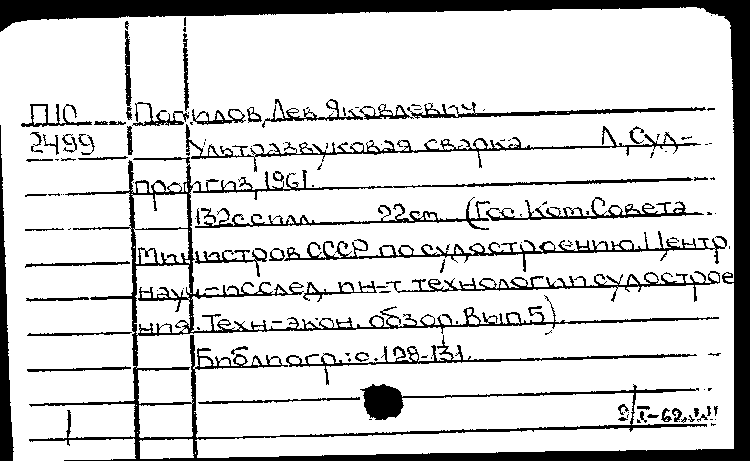 П10 Попилов, Лев Яковлевич.
2499 Ультразвуковая сварка. Л., Суд-
промгиз, 1961.
132с с илл. 22см (Гос. Ком. Совета
Министров СССР по судостроению. Центр.
науч-исслед. ин-т технологии судострое
ния. Техн-экон. обзор. Вып. 5)
Библиогр.: с. 128-131.